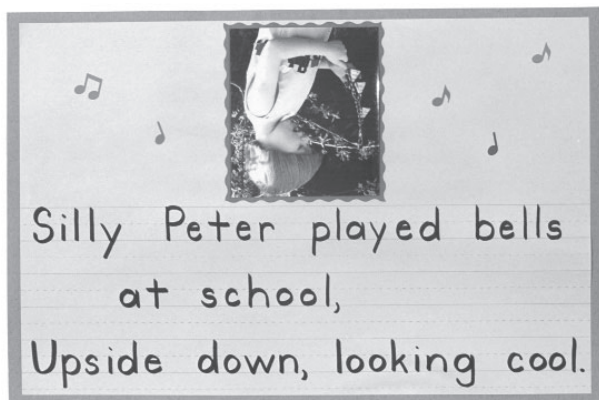 Silly Peter played bells
at school,
Upside down, looking cool.